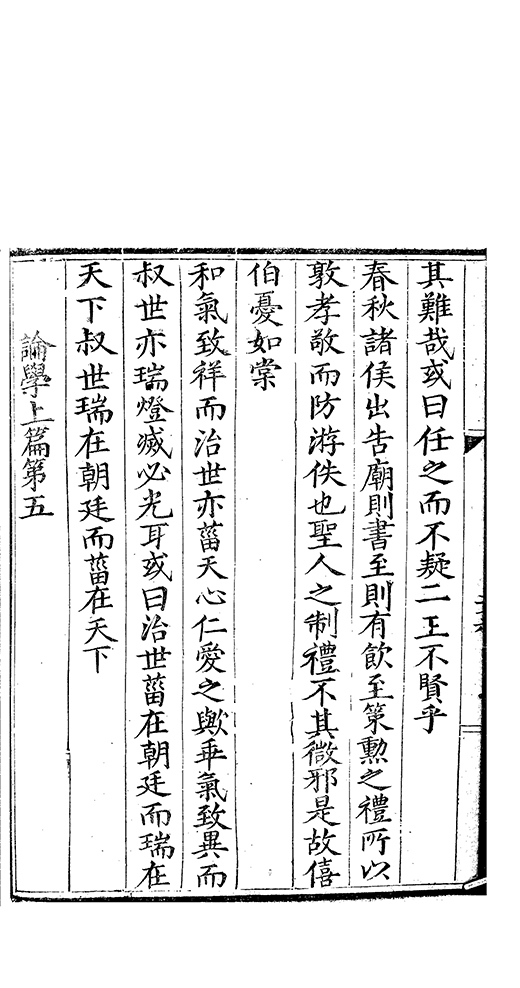 其難哉或曰任之而不疑二王不賢乎
春秋諸侯出告廟則書至則有飲至策勲之禮所以
敦孝敬而防游佚也聖人之制禮不其微邪是故僖
伯憂如棠
和氣致祥而治世亦葘天心仁愛之歟乖氣致異而
叔世亦瑞燈滅必光耳或曰治世葘在朝廷而瑞在
天下叔世瑞在朝廷而葘在天下
論學上篇第五